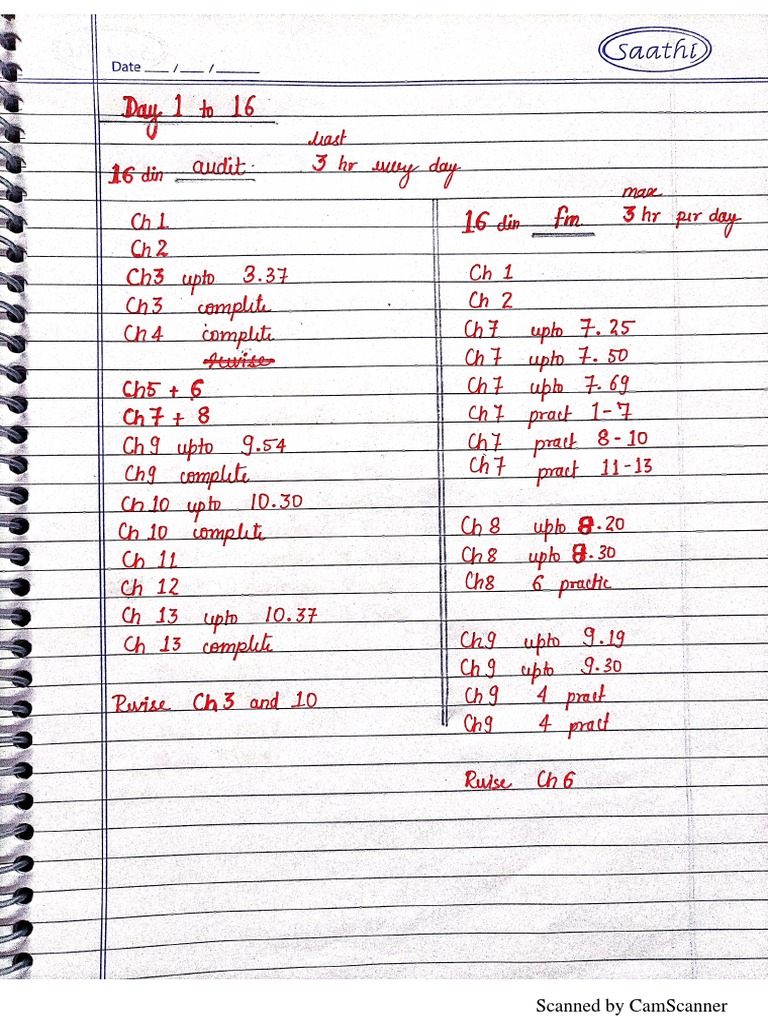 Saathi
Date ___/___/_____
Day 1 to 16
16 din audit least 3 hr every day
Ch 1
Ch 2
Ch3 upto 3.37
Ch 3 complete
Ch 4 complete
revise
Ch5 + 6
Ch 7 + 8
Ch 9 upto 9.54
Ch9 complete
Ch 10 upto 10.30
Ch 10 complete
Ch 11
Ch 12
Ch 13 upto 10.37
Ch 13 complete
Revise Ch 3 and 10
16 din fm max 3 hr per day
Ch 1
Ch 2
Ch 7 upto 7.25
Ch 7 upto 7.50
Ch 7 upto 7.69
Ch 7 pract 1-7
Ch 7 pract 8-10
Ch 7 pract 11-13
Ch 8 upto 8.20
Ch 8 upto 8.30
Ch8 6 practic
Ch9 upto 9.19
Ch 9 upto 9.30
Ch 9 4 pract
Ch9 4 pract
Revise Ch 6
Scanned by CamScanner